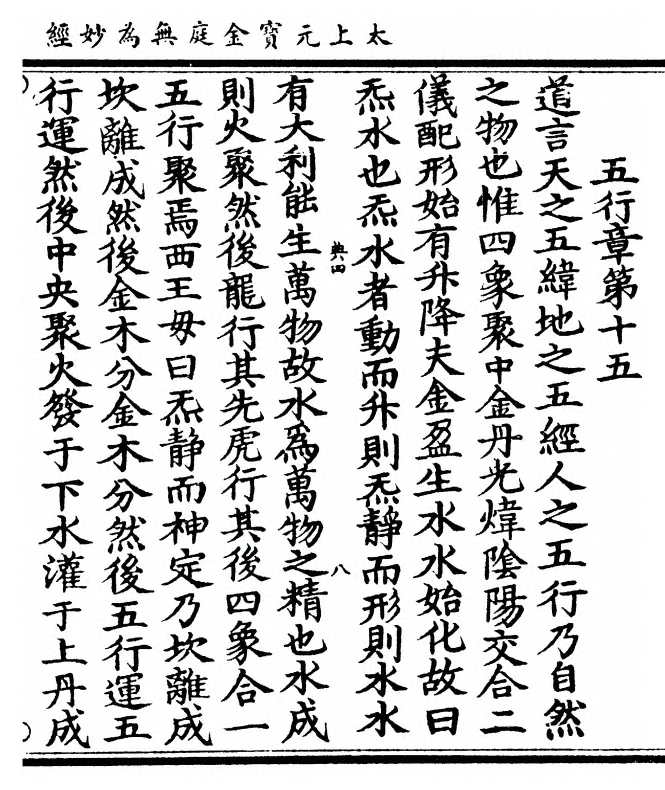 太上元寶金庭無為妙經
五行章第十五
道言天之五緯地之五經人之五行乃自然
之物也惟四象聚中金丹光煒陰陽交合二
儀配形始有升降夫金盈生水水始化故曰
炁水也炁水者動而升則炁靜而形則水水
典四
八
有大利能生萬物故水為萬物之精也水成
則火聚然後龍行其先虎行其後四象合一
五行聚焉西王毋曰炁靜而神定乃坎離成
坎離成然後金木分金木分然後五行運五
行運然後中央聚火發于下水灌于上丹成